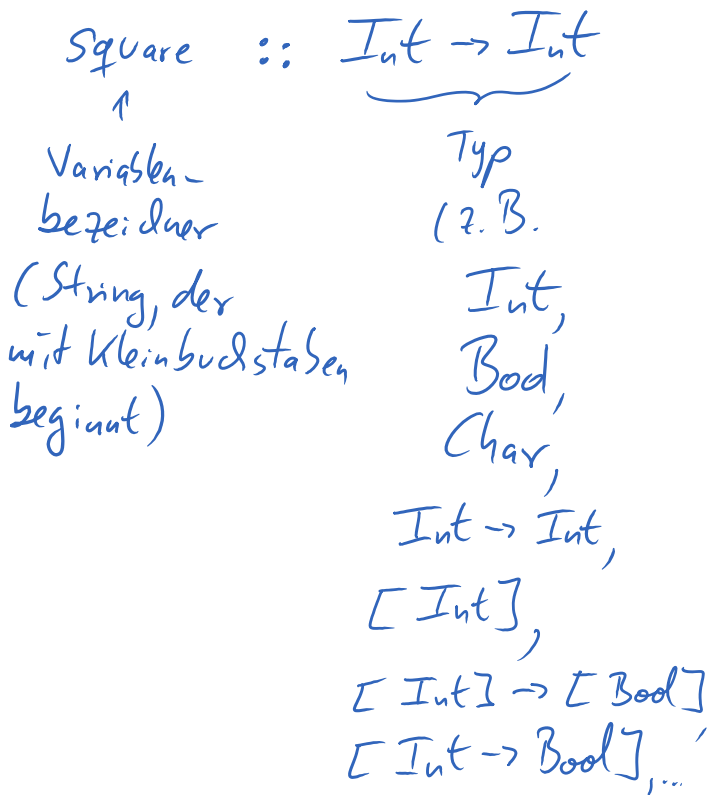 square :: Int → Int
↑
Variablen-
bezeichner
(String, der
mit Kleinbuchstaben
beginnt)
Typ
(z.B.
Int,
Bool,
Char,
Int → Int,
[Int],
[Int] → [Bool],
[Int → Bool],...